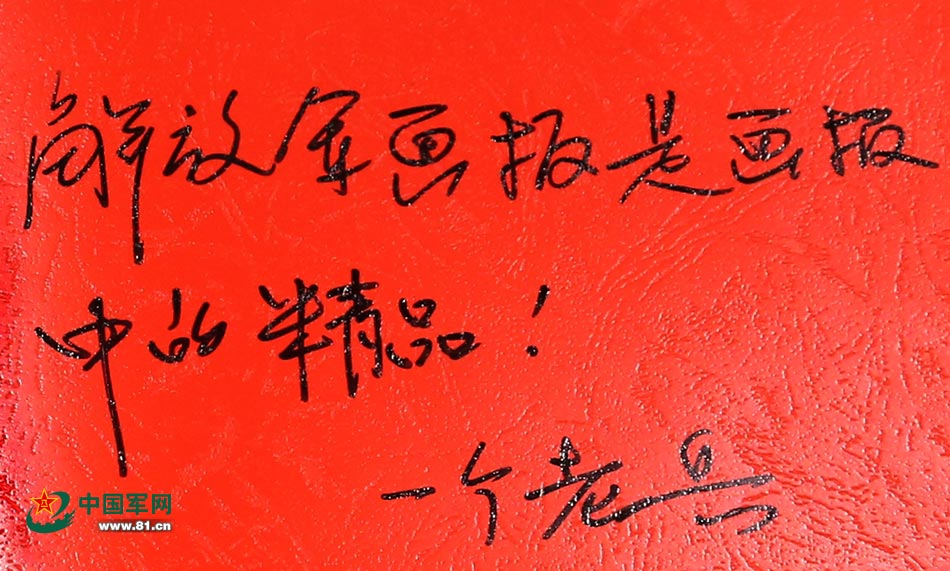 解放军画报是画报
中的精品！
一个老兵
中国军网
www.81.cn